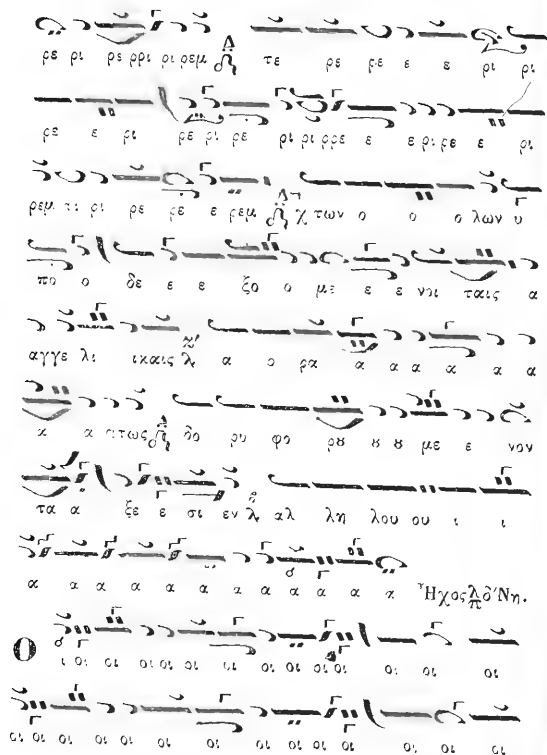 ρε ρι ρε ρρι ρι ρεμ Δ τε ρε ρε ε ε ρι ρι
ρε ε ρι ρε ρι ρε ρι ρι ρρε ε ε ρι ρε ε ρι
ρεμ τι ρι ρε ρε ε ρεμ Δ χ των ο ο ο λων υ
πο ο δε ε ε ξο ο με ε ε νοι ταις α
αγγε λι ικαις λ α ο ρα α α α α α α
α α τως δο ρυ φο ρȣ ȣ ȣ με ε νον
τα α ξε ε σι εν λ αλ λη λου ου ι ι
α α α α α α α α α α α α Ἦχος λ π δ' Νη.
Ο ι οι οι οι οι οι οι οι οι οι οι οι οι οι
οι οι οι οι οι οι οι οι οι οι οι οι οι